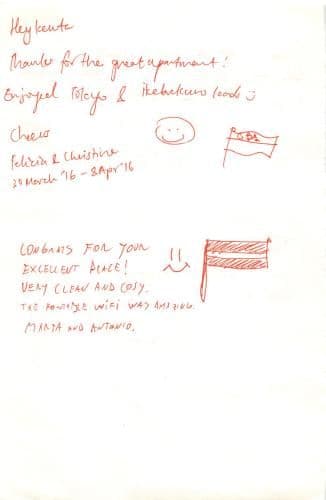 Hey Kenta
Thanks for the great apartment!
Enjoyed Tokyo & Ikebukuro loads
Cheers
Felicia & Christine
30 March '16 - 8 Apr '16
CONGRATS FOR YOUR
EXCELLENT PLACE!
VERY CLEAN AND COSY.
THE WIFI WAS AMAZING.
MARTA AND ANTONIO.